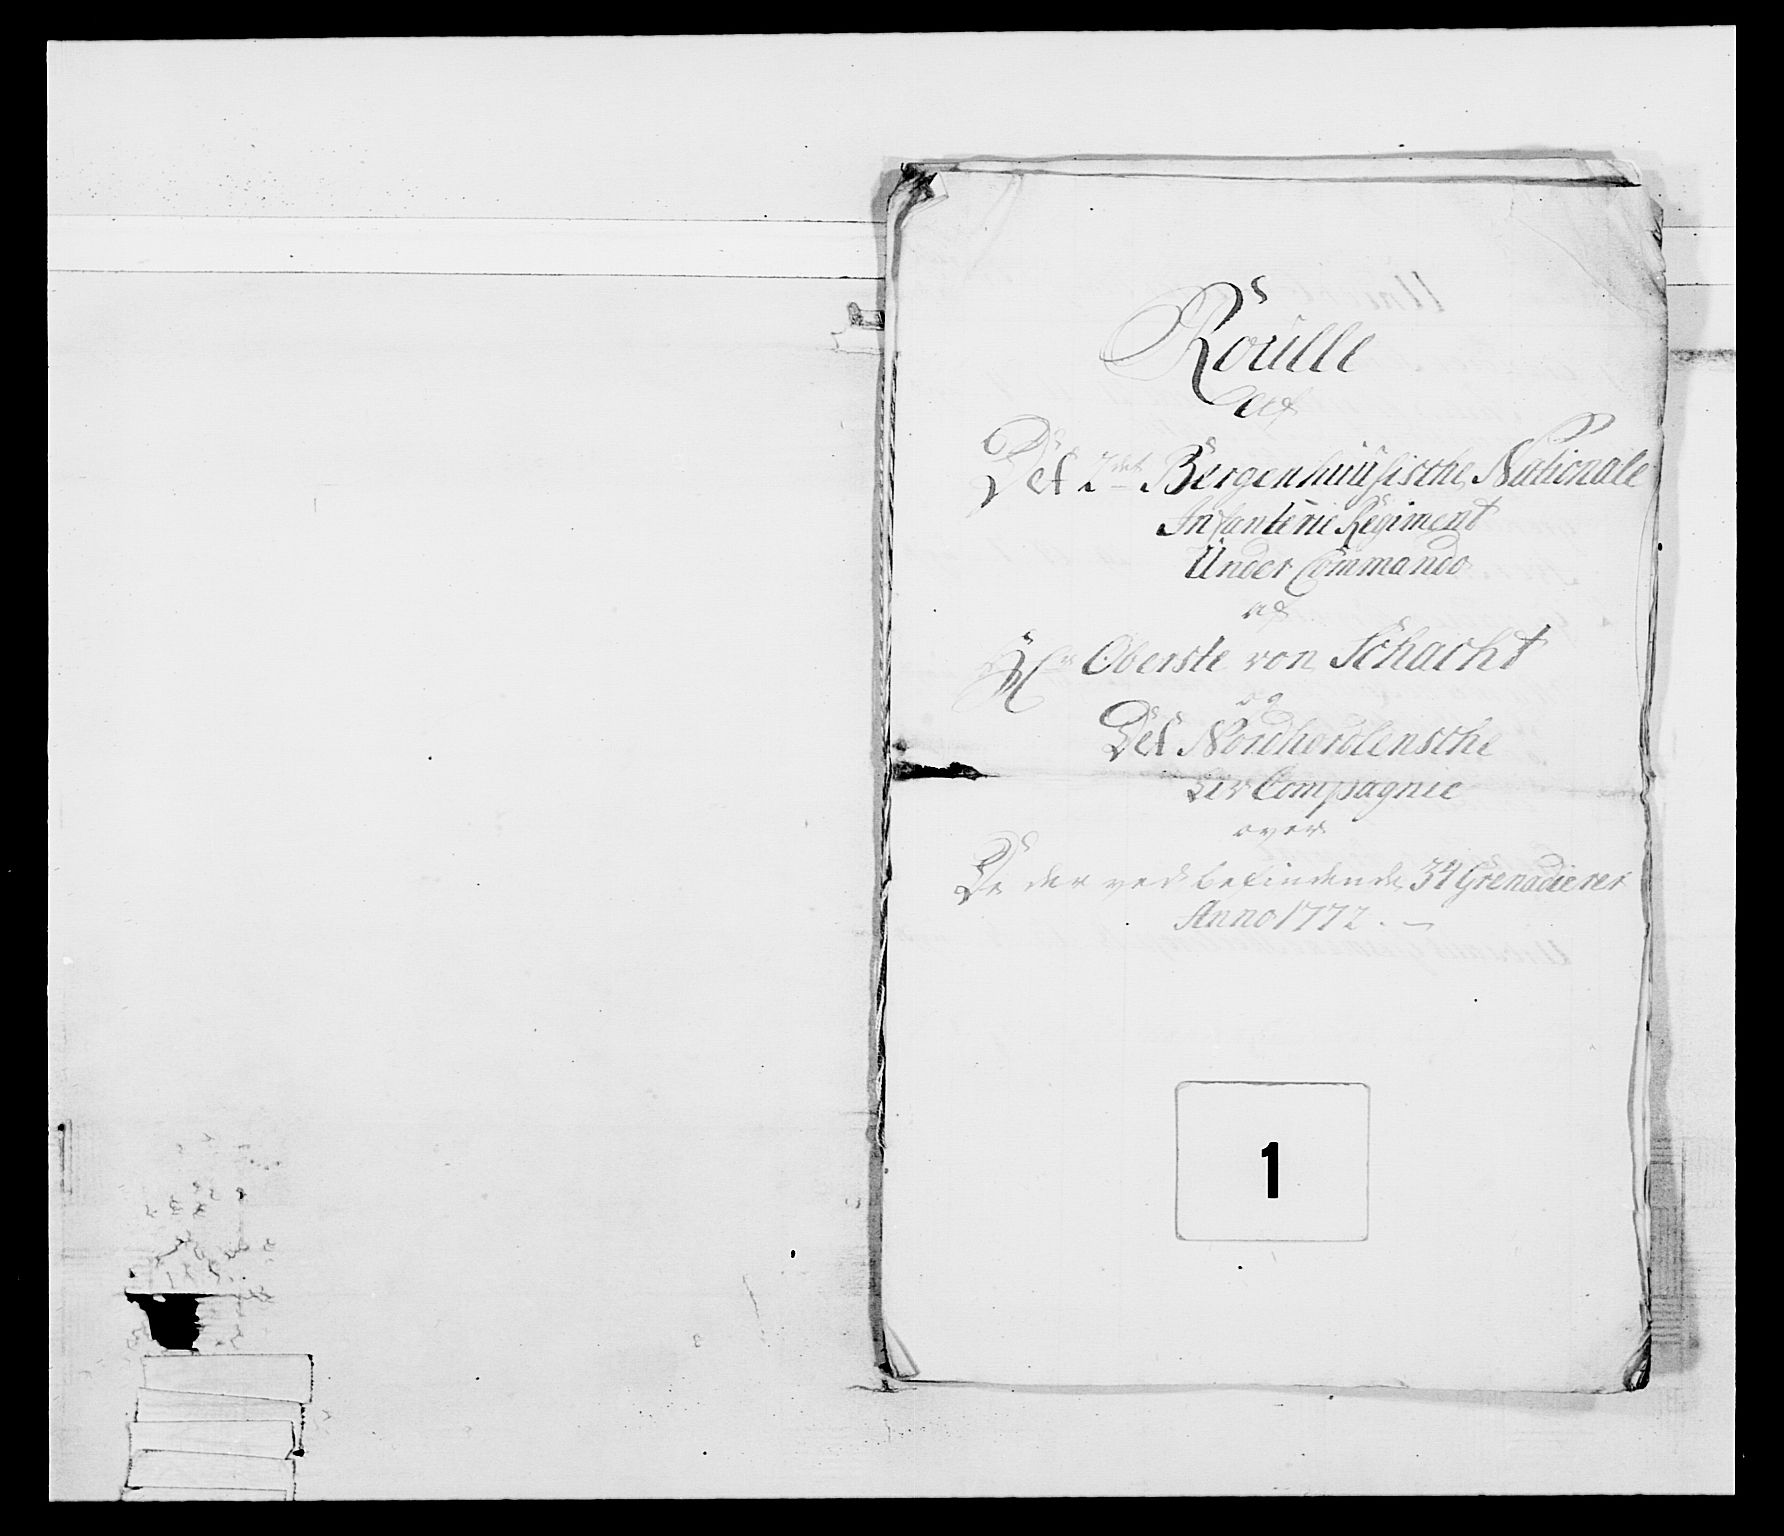 Roulle
af
Det 2det Bergenhuusische Nationale
Infanterie Regiment
Under Commando
af
Hr Oberste von Schacht
og
Det Nordhordlensche
Liv Compagnie
over
De der ved befindende 34 Grenadierer
Anno 1772. —
1